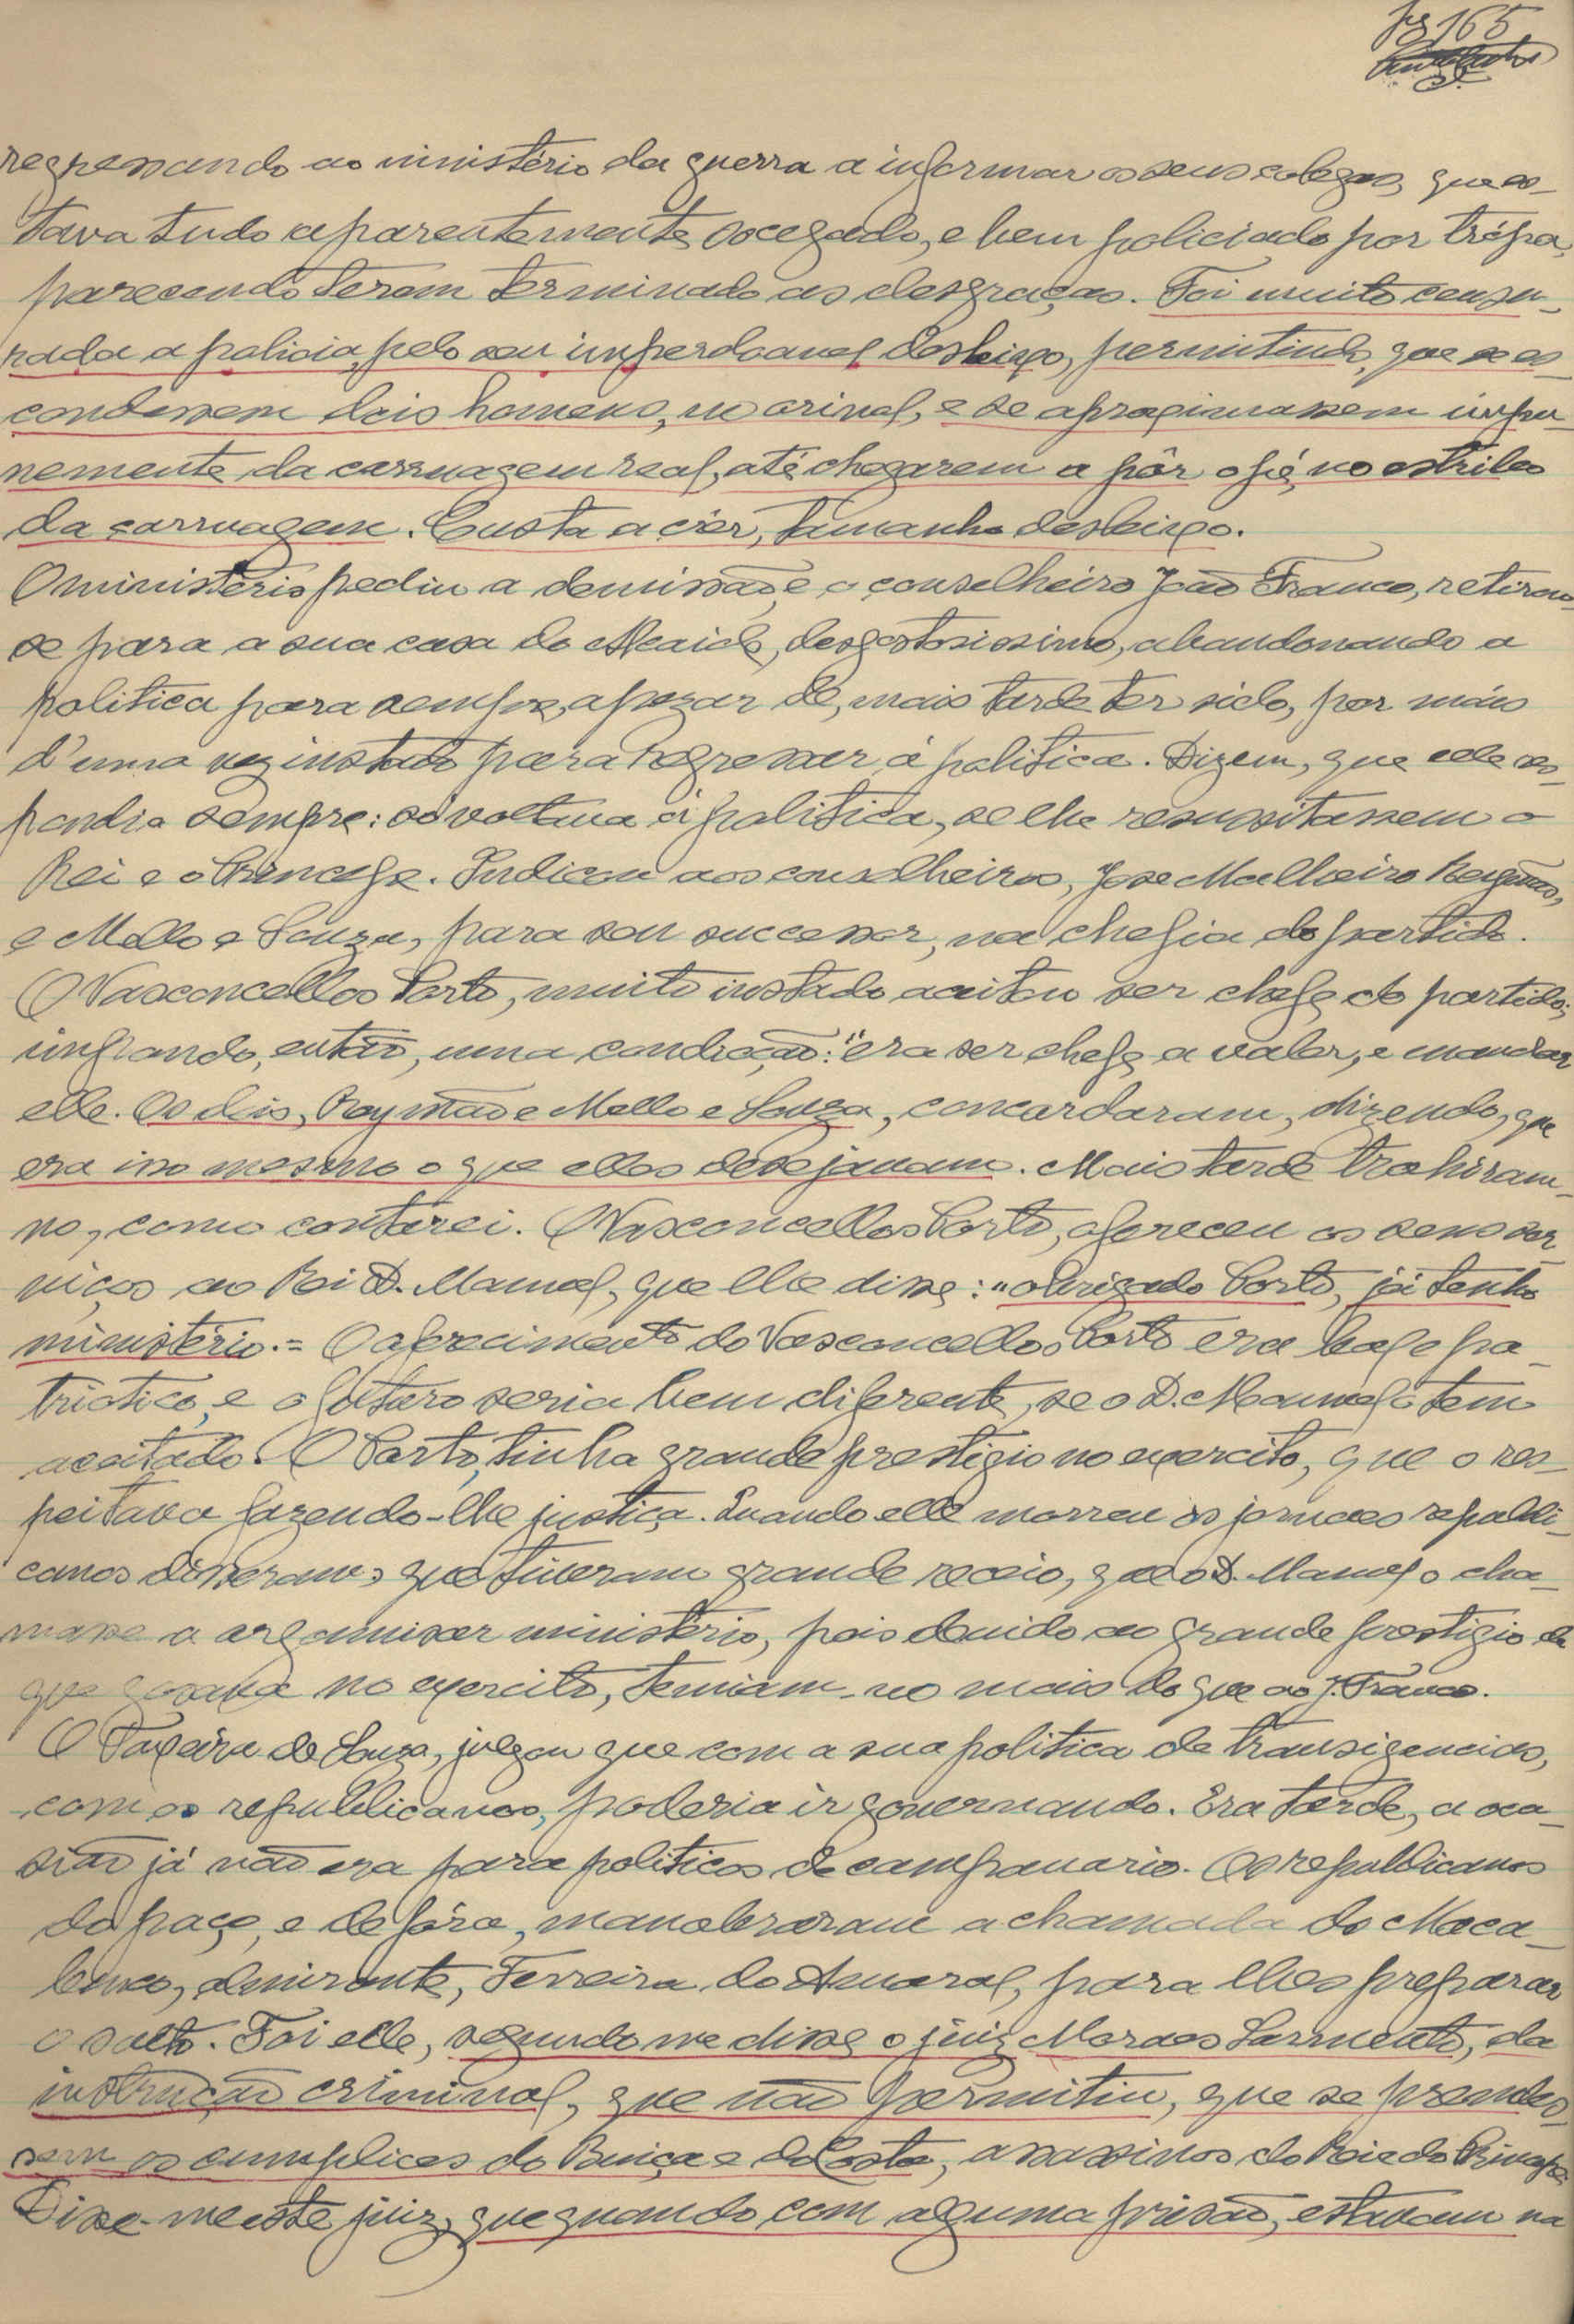 fs 165
regressando ao ministério da guerra a informar os seus colegas, que es-
tava tudo aparentemente socegado, e bem policiado por trópa,
parecendo terem terminado as desgraças. Foi muito censu-
rada a policia, pelo seu imperdoavel desleixo, permitindo, que se es-
condessem dois homens, no orinol, e se aproximassem impu-
nemente da carruagem real, até chegarem a pôr o pé, no estribo
da carruagem. Custa a crêr, tamanho desleixo.
O ministério pediu a demissão, e o conselheiro João Franco, retirou-
se para a sua casa do Alcaide, desgostosissimo, abandonando a
politica para sempre, apezar de, mais tarde ter sido, por máis
d'uma vez instado para regressar á politica. Dizem, que elle res-
pondia sempre: só voltava á politica, se lhe resussitassem o
Rei e o Principe. Indicou aos conselheiros, Jose Malheiro Reymão,
e Mello e Souza, para seu successor, na chefia do partido.
O Vasconcellos Porto, muito instado aceitou ser chefe do partido;
impondo, então, uma condicção: "era ser chefe a valer, e mandar
elle. Os dois, Reymão e Mello e Souza, concordaram, dizendo, que
era isso mesmo o que elles desejavam. Mais tarde trahiram-
no, como contarei. O Vasconcellos Porto, ofereceu os seus ser-
viços ao Rei D. Manuel, que lhe disse: "obrigado Porto, já tenho
ministério.= O oferecimento do Vasconcellos Porto era leal e pa-
triotico, e o futuro seria bem diferente, se o D. Manuel o tem
aceitado. O Porto, tinha grande prestigio no exercito, que o res-
peitava fazendo-lhe justiça. Quando elle morreu os jornaes republi-
canos disseram, que tiveram grande receio, que o D. Manuel o cha-
masse a organisar ministério, pois devido ao grande prestigio de
que gosava no exercito, temiam-no mais do que ao J. Franco.
O Teixeira de Souza, julgou que com a sua politica de transigencias,
com os republicanos, poderia ir governando. Era tarde, a oca-
sião já não era para politicos de campanario. Os republicanos
do paço, e de fóra, manobraram a chamada do Maca-
benco, almirante, Ferreira do Amaral, para lhes preparar
o salto. Foi elle, segundo me disse o juiz Moraes Sarmento, da
instrução criminal, que não permitiu, que se prendes-
sem os cumplices do Buiça e do Costa, assassinos do Rei e do Principe.
Disse-me este juiz, que quando com alguma prisão, estavam na